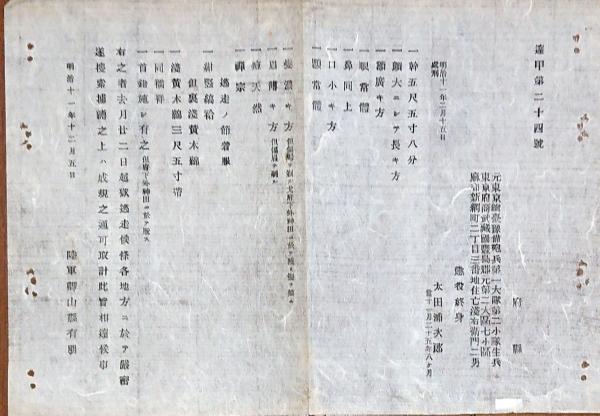 達甲第二十四號
府縣
元東京鎮臺豫備砲兵第一大隊第二小隊生兵
東京府商武藏國豐島郡元第二大區七小區
麻布新網町二丁目三番地住亡淺右衛門二男
懲役終身
太田浦次郎
當十一月二十五年八ケ月
明治十一年二月十五日
處刑
一幹五尺五寸八分
一顏大ニシテ長キ方
一額廣キ方
一眼常體
一鼻同上
一口小キ方
一頤常體
一髮濃キ方
一眉薄キ方
一疱天然
一禪宗
逃走ノ節着服
一紺竪縞袷
但裏淺黄木綿
一淺黄木綿三尺五寸帶
一同襦袢
一首鎖施シ有之
右之者去月廿二日越獄逃走候條各地方ニ於テ嚴密
遂搜索捕縛之上ハ成規之通可取計此旨相達候事
明治十一年十二月五日
陸軍卿山縣有朋